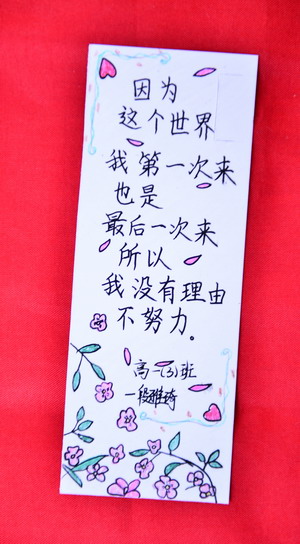 因为
这个世界
我第一次来
也是
最后一次来
所以
我没有理由
不努力。
高一(3)班
一段雅琦